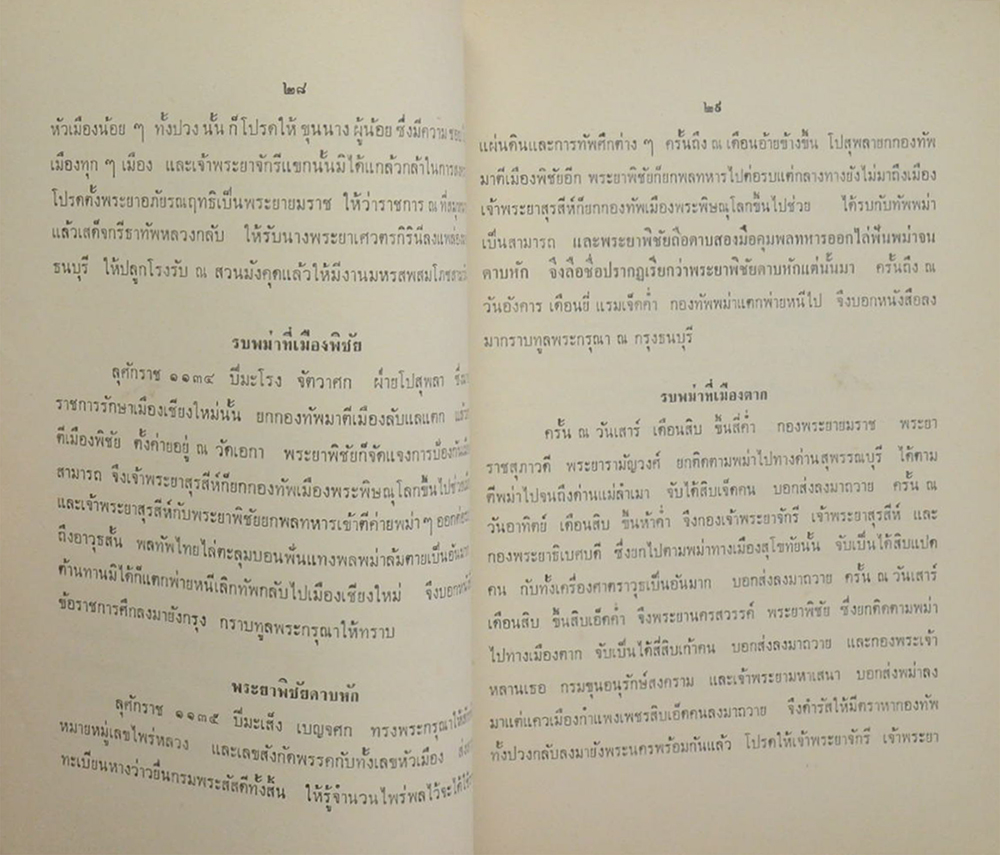 ๒๘
หัวเมืองน้อย ๆ ทั้งปวง นั้น ก็โปรดให้ ขุนนาง ผู้น้อย ซึ่งมีความ ชอบ
เมืองทุก ๆ เมือง และเจ้าพระยาจักรีแขกนั้นมิได้แกล้วกล้าในการ
โปรดตั้งพระยาอภัยรณฤทธิเป็นพระยายมราช ให้ว่าราชการ ณ ที่
แล้วเสด็จกรีธาทัพหลวงกลับ ให้รับนางพระยาเศวตรกิรินีลงแพล่อง
ธนบุรี ให้ปลูกโรงรับ ณ สวนมังคุดแล้วให้มีงานมหรสพสมโภช
รบพม่าที่เมืองพิชัย
ลุศักราช ๑๑๓๔ ปีมะโรง จัตวาศก ฝ่ายโปสุพลา ซึ่ง
ราชการรักษาเมืองเชียงใหม่นั้น ยกกองทัพมาตีเมืองลับแลแตก แล้ว
ตีเมืองพิชัย ตั้งค่ายอยู่ ณ วัดเอกา พระยาพิชัยก็จัดแจงการป้องกัน
สามารถ จึงเจ้าพระยาสุรสีห์ก็ยกกองทัพเมืองพระพิษณุโลกขึ้นไปช่วย
และเจ้าพระยาสุรสีห์กับพระยาพิชัยยกพลทหารเข้าตีค่ายพม่า ๆ ออก
ถึงอาวุธสั้น พลทัพไทยไล่ตะลุมบอนฟันแทงพลพม่าล้มตายเป็นอันมาก
ต้านทานมิได้ก็แตกพ่ายหนีเลิกทัพกลับไปเมืองเชียงใหม่ จึงบอก
ข้อราชการศึกลงมายังกรุง กราบทูลพระกรุณาให้ทราบ
พระยาพิชัยดาบหัก
ลุศักราช ๑๑๓๕ ปีมะเส็ง เบญจศก ทรงพระกรุณาให้
หมายหมู่เลขไพร่หลวง และเลขสังกัดพรรคกับทั้งเลขหัวเมือง
ทะเบียนหางว่าวยื่นกรมพระสัสดีทั้งสิ้น ให้รู้จำนวนไพร่พลไว้จะได้
๒๙
แผ่นดินและการทัพศึกต่าง ๆ ครั้นถึง ณ เดือนอ้ายข้างขึ้น โปสุพลายกกองทัพ
มาตีเมืองพิชัยอีก พระยาพิชัยก็ยกพลทหารไปต่อรบแต่กลางทางยังไม่มาถึงเมือง
เจ้าพระยาสุรสีห์ก็ยกกองทัพเมืองพระพิษณุโลกขึ้นไปช่วย ได้รบกับทัพพม่า
เป็นสามารถ และพระยาพิชัยถือดาบสองมือคุมพลทหารออกไล่ฟันพม่าจน
ดาบหัก จึงลือชื่อปรากฏเรียกว่าพระยาพิชัยดาบหักแต่นั้นมา ครั้นถึง ณ
วันอังคาร เดือนยี่ แรมเจ็ดค่ำ กองทัพพม่าแตกพ่ายหนีไป จึงบอกหนังสือลง
มากราบทูลพระกรุณา ณ กรุงธนบุรี
รบพม่าที่เมืองตาก
ครั้น ณ วันเสาร์ เดือนสิบ ขึ้นสี่ค่ำ กองพระยายมราช พระยา
ราชสุภาวดี พระยารามัญวงศ์ ยกติดตามพม่าไปทางด่านสุพรรณบุรี ได้ตาม
ตีพม่าไปจนถึงด่านแม่ลำเมา จับได้สิบเจ็ดคน บอกส่งลงมาถวาย ครั้น ณ
วันอาทิตย์ เดือนสิบ ขึ้นห้าค่ำ จึงกองเจ้าพระยาจักรี เจ้าพระยาสุรสีห์ และ
กองพระยาธิเบศบดี ซึ่งยกไปตามพม่าทางเมืองสุโขทัยนั้น จับเป็นได้สิบแปด
คน กับทั้งเครื่องศาตราวุธเป็นอันมาก บอกส่งลงมาถวาย ครั้น ณ วันเสาร์
เดือนสิบ ขึ้นสิบเอ็ดค่ำ จึงพระยานครสวรรค์ พระยาพิชัย ซึ่งยกติดตามพม่า
ไปทางเมืองตาก จับเป็นได้สี่สิบเก้าคน บอกส่งลงมาถวาย และกองพระเจ้า
หลานเธอ กรมขุนอนุรักษ์สงคราม และเจ้าพระยามหาเสนา บอกส่งพม่าลง
มาแต่แควเมืองกำแพงเพชรสิบเอ็ดคนลงมาถวาย จึงดำรัสให้มีตราหากองทัพ
ทั้งปวงกลับลงมายังพระนครพร้อมกันแล้ว โปรดให้เจ้าพระยาจักรี เจ้าพระยา